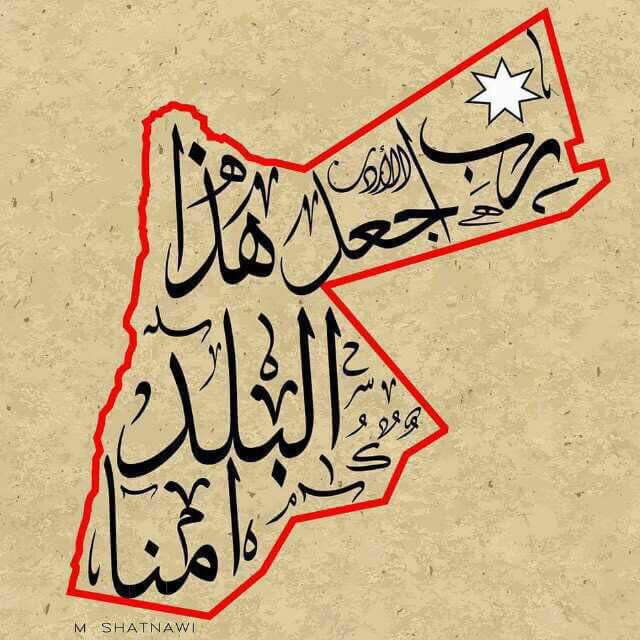 رب اجعل هذا
الأردن
البلد
امنا
M SHATNAWI